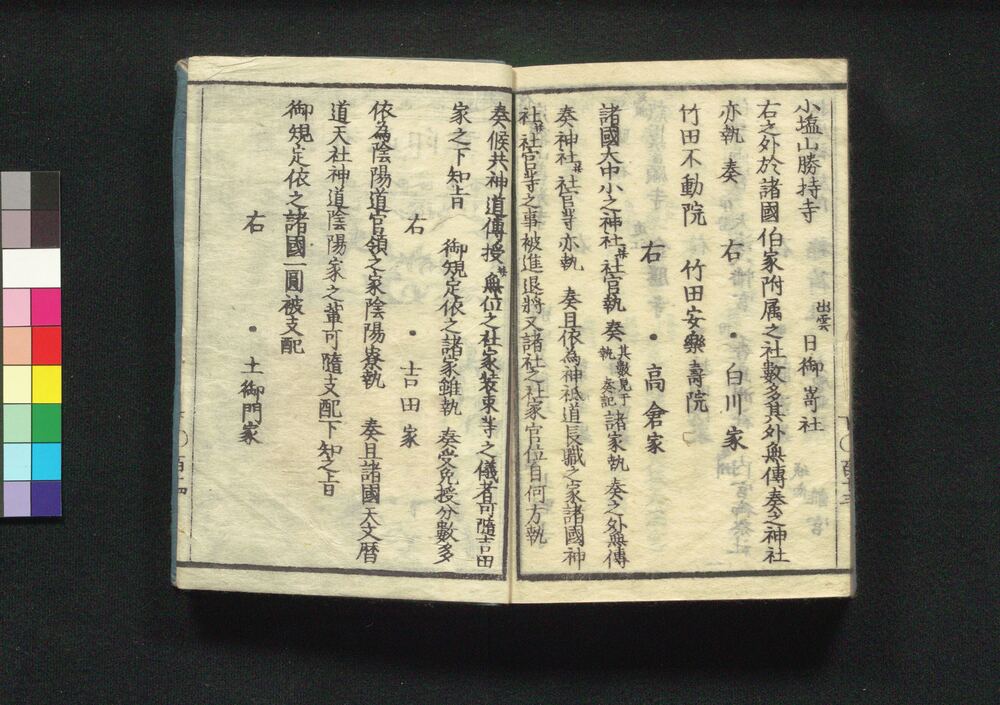 小塩山勝持寺　出雲　日御嵜社
右之外於諸國伯家附属之社數多其外無傳奏之神社
亦執　奏　右　・　白川家
竹田不動院　竹田安樂壽院
右　・　髙倉家
諸國大中小之神社幷社官執　奏其數見于執　奏記諸家執　奏之外無傳
奏神社幷社官等亦執　奏且依為神祇道長職之家諸國神
社幷社官等之事被進退將又諸社之社家官位自何方執
奏候共神道傳授幷無位之社家裝束等之儀者可隨吉田
家之下知旨　御規定依之諸家雖執　奏受免授分數多
右　・　吉田家
依為陰陽道官領之家陰陽寮執　奏且諸國天文暦
道天社神道陰陽家之輩可隨支配下知之旨
御規定依之諸國一圓被支配
右　・　土御門家
百十四